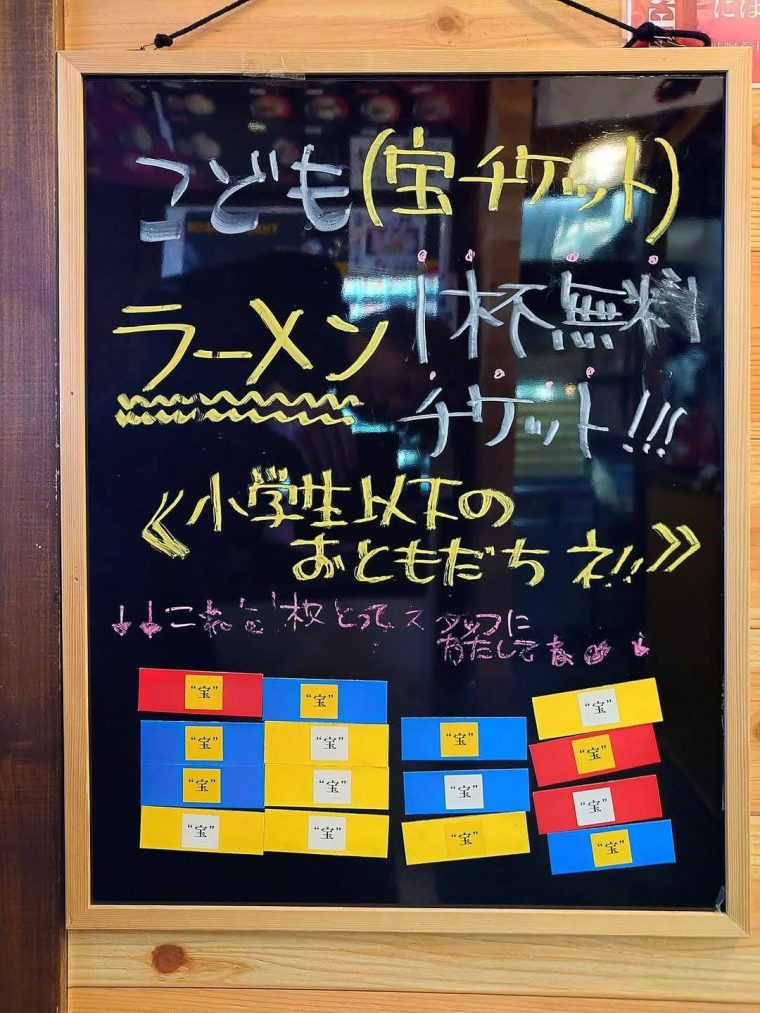 こども(宝チケット)
ラーメン 1杯無料
チケット!!!
《小学生以下の
おともだち ネ!!》
↓↓これを1枚とってスタッフに
わたしてね ↓
"宝" "宝"
"宝" "宝" "宝" "宝"
"宝" "宝" "宝" "宝"
"宝" "宝" "宝" "宝"
"宝"